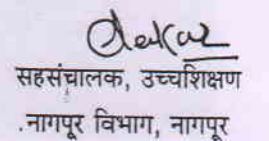 सहसंचालक, उच्चशिक्षण
.नागपूर विभाग, नागपूर